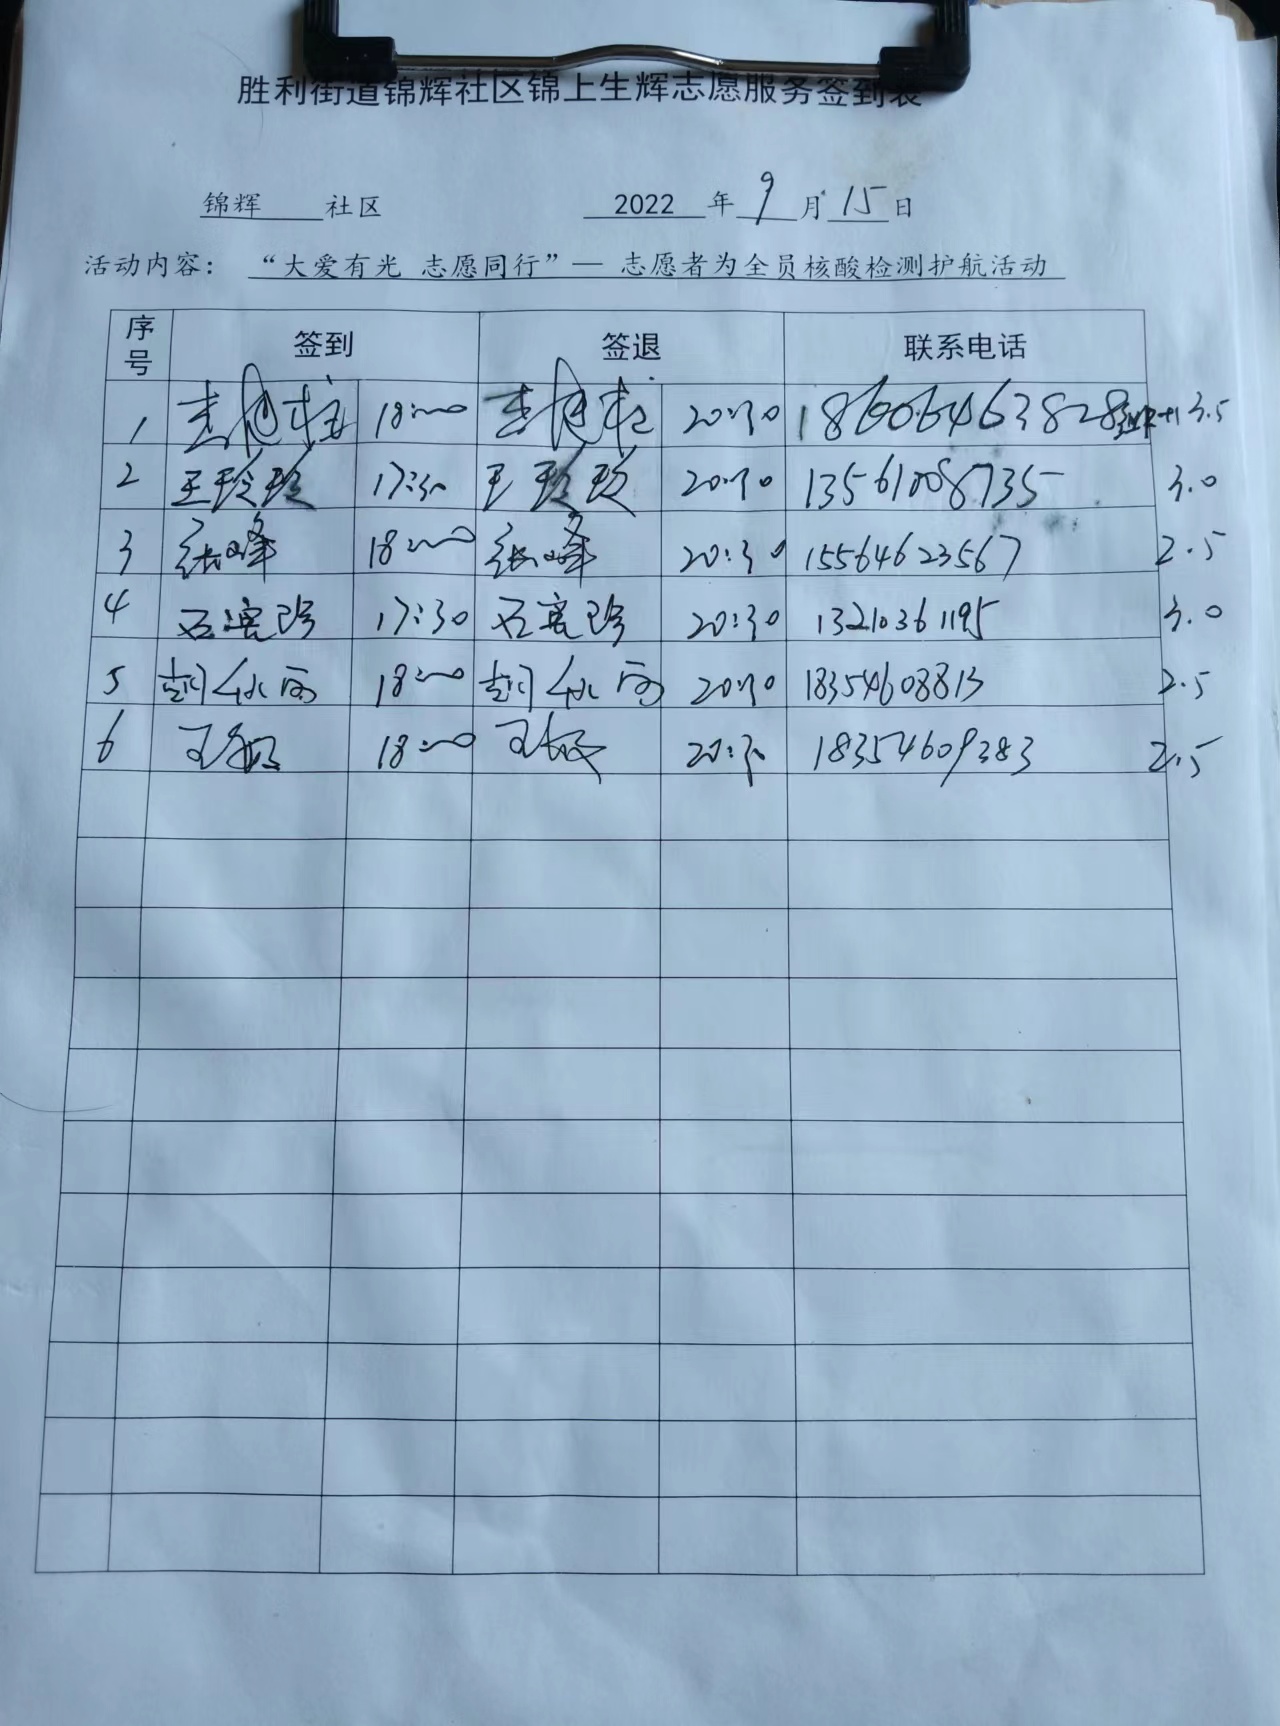 胜利街道锦辉社区锦上生辉志愿服务签到表
锦辉 社区 2022 年 9 月 15 日
活动内容： “大爱有光 志愿同行”— 志愿者为全员核酸检测护航活动
序号 签到 签退 联系电话
1 18:00 20:30 18606463828 3.5
2 王玲玲 17:30 王玲玲 20:30 13561008735 3.0
3 张峰 18:00 张峰 20:30 15564623567 2.5
4 17:30 20:30 13210361195 3.0
5 18:00 20:30 18354608813 2.5
6 18:00 20:30 18354609383 2.5